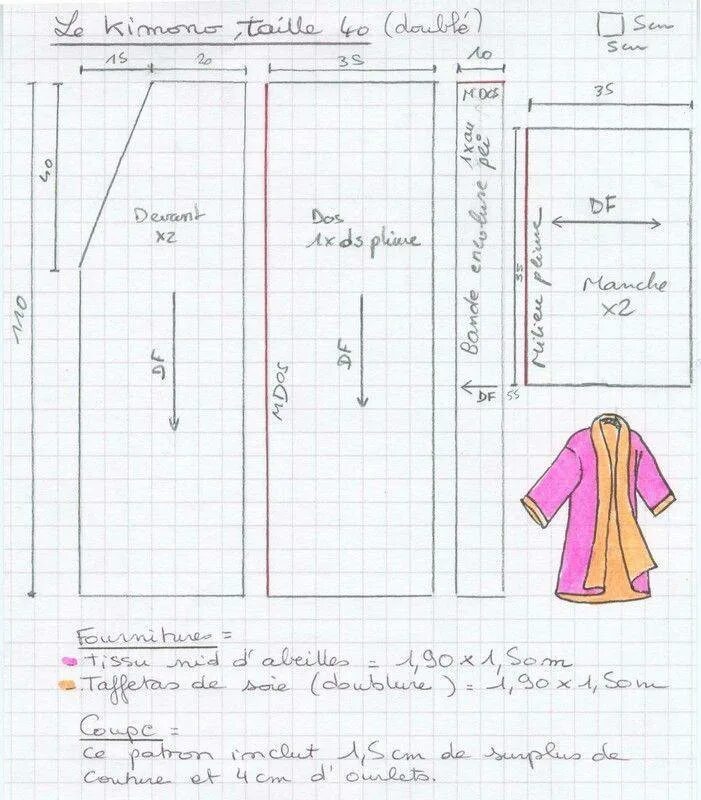 Le Kimono, taille 40 (doublé)
5cm
5cm
15
20
35
10
35
40
110
Devant
x2
DF
Dos
1x ds pliure
DF
MDos
MDOS
Bande encolure 1x au pli
DF
55
35
Milieu pliure
DF
Manche
x2
Fournitures =
- Tissu nid d'abeilles = 1,90 x 1,50m
- Taffetas de soie (doublure) = 1,90 x 1,50m
Coupe =
Ce patron inclut 1,5cm de surplus de
couture et 4cm d'ourlets.